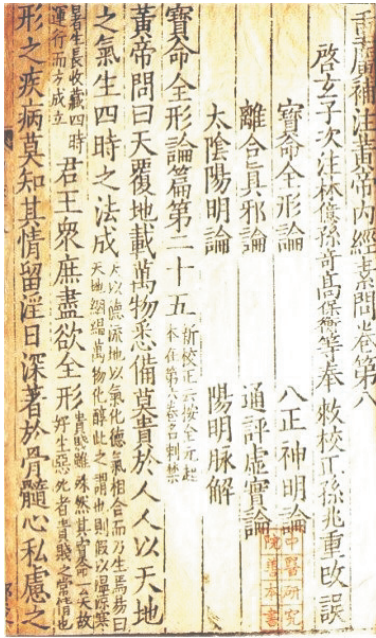 重廣補注黃帝內經素問卷第八
啓玄子次注林億孫奇高保衡等奉敕校正孫兆重改誤
寶命全形論 八正神明論
離合真邪論 通評虛實論
太陰陽明論 陽明脉解
寶命全形論篇第二十五 新校正云按全元起本在第六卷名刺禁
黃帝問曰天覆地載萬物悉備莫貴於人人以天地
之氣生四時之法成 天以德流地以氣化德氣相合而乃生焉易曰天地絪縕萬物化醇此之謂也則假以溫涼寒
暑生長收藏四時運行而方成立 君王眾庶盡欲全形 貴賤雖殊然其寶命一矣故好生惡死者貴賤之常情也
形之疾病莫知其情留淫日深著於骨髓心私慮之
中醫研究院善本書